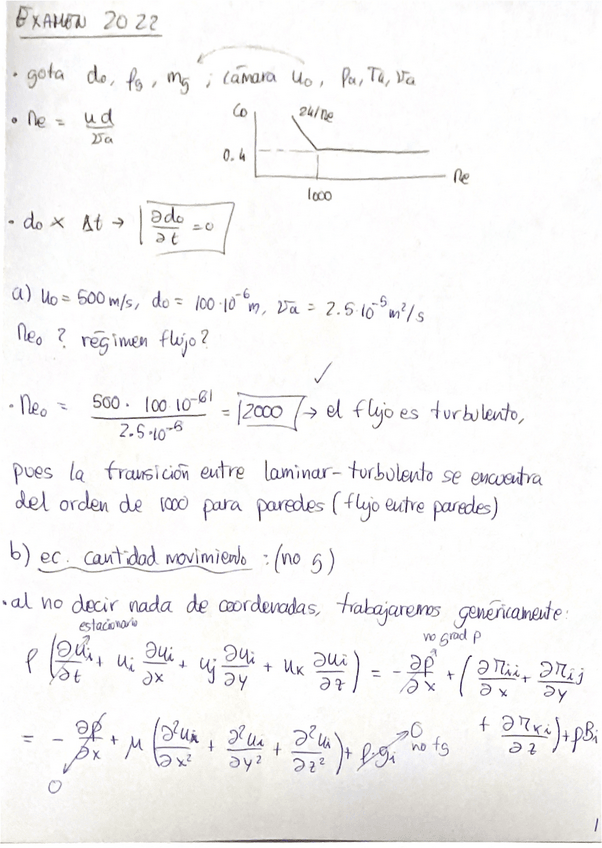 EXAMEN 2022
· gota do, ρg, mg ; cámara uo, Pa, Ta, νa
· Re = ud/νa
CD
24/Re
0.4
Re
1000
· do ≠ Δt → ∂do/∂t = 0
a) uo = 500 m/s, do = 100·10⁻⁶ m, νa = 2.5·10⁻⁵ m²/s
Reo ? régimen flujo?
✓
· Reo = 500 · 100 10⁻⁶/2.5·10⁻⁵ = 2000 → el flujo es turbulento,
pues la transición entre laminar-turbulento se encuentra
del orden de 1000 para paredes (flujo entre paredes)
b) ec. cantidad movimiento : (no g)
· al no decir nada de coordenadas, trabajaremos genéricamente:
estacionario
no grad P
ρ (∂ui/∂t + ui ∂ui/∂x + uj ∂ui/∂y + uk ∂ui/∂z) = - ∂p/∂x + (∂τii/∂x + ∂τij/∂y
+ ∂τki/∂z) + ρBi
= - ∂p/∂x + μ (∂²ui/∂x² + ∂²ui/∂y² + ∂²ui/∂z²) + ρ·gi
0
0
no fg
1